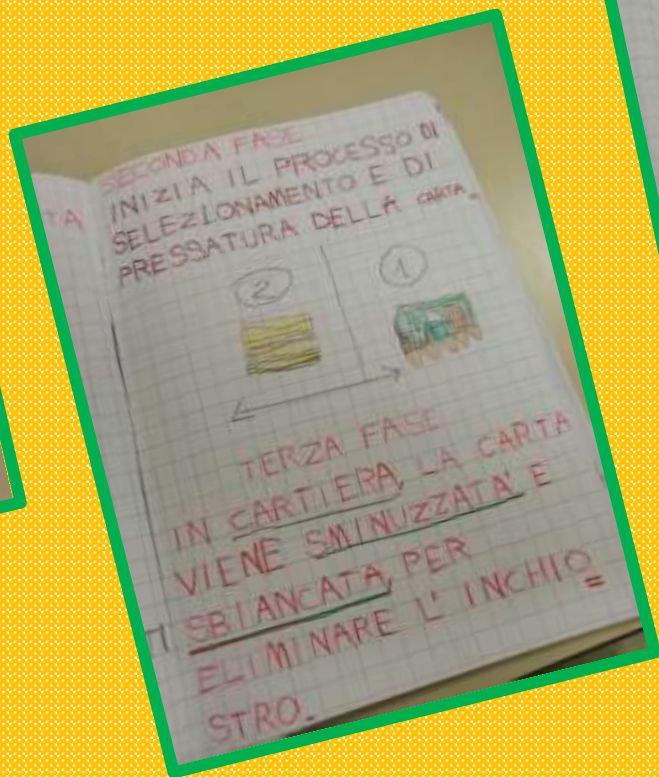 TA
SECONDA FASE
INIZIA IL PROCESSO DI
SELEZIONAMENTO E DI
PRESSATURA DELLA CARTA.
2
1
TERZA FASE
IN CARTIERA, LA CARTA
VIENE SMINUZZATA E
TI
SBIANCATA, PER
ELIMINARE L' INCHIO=
STRO.